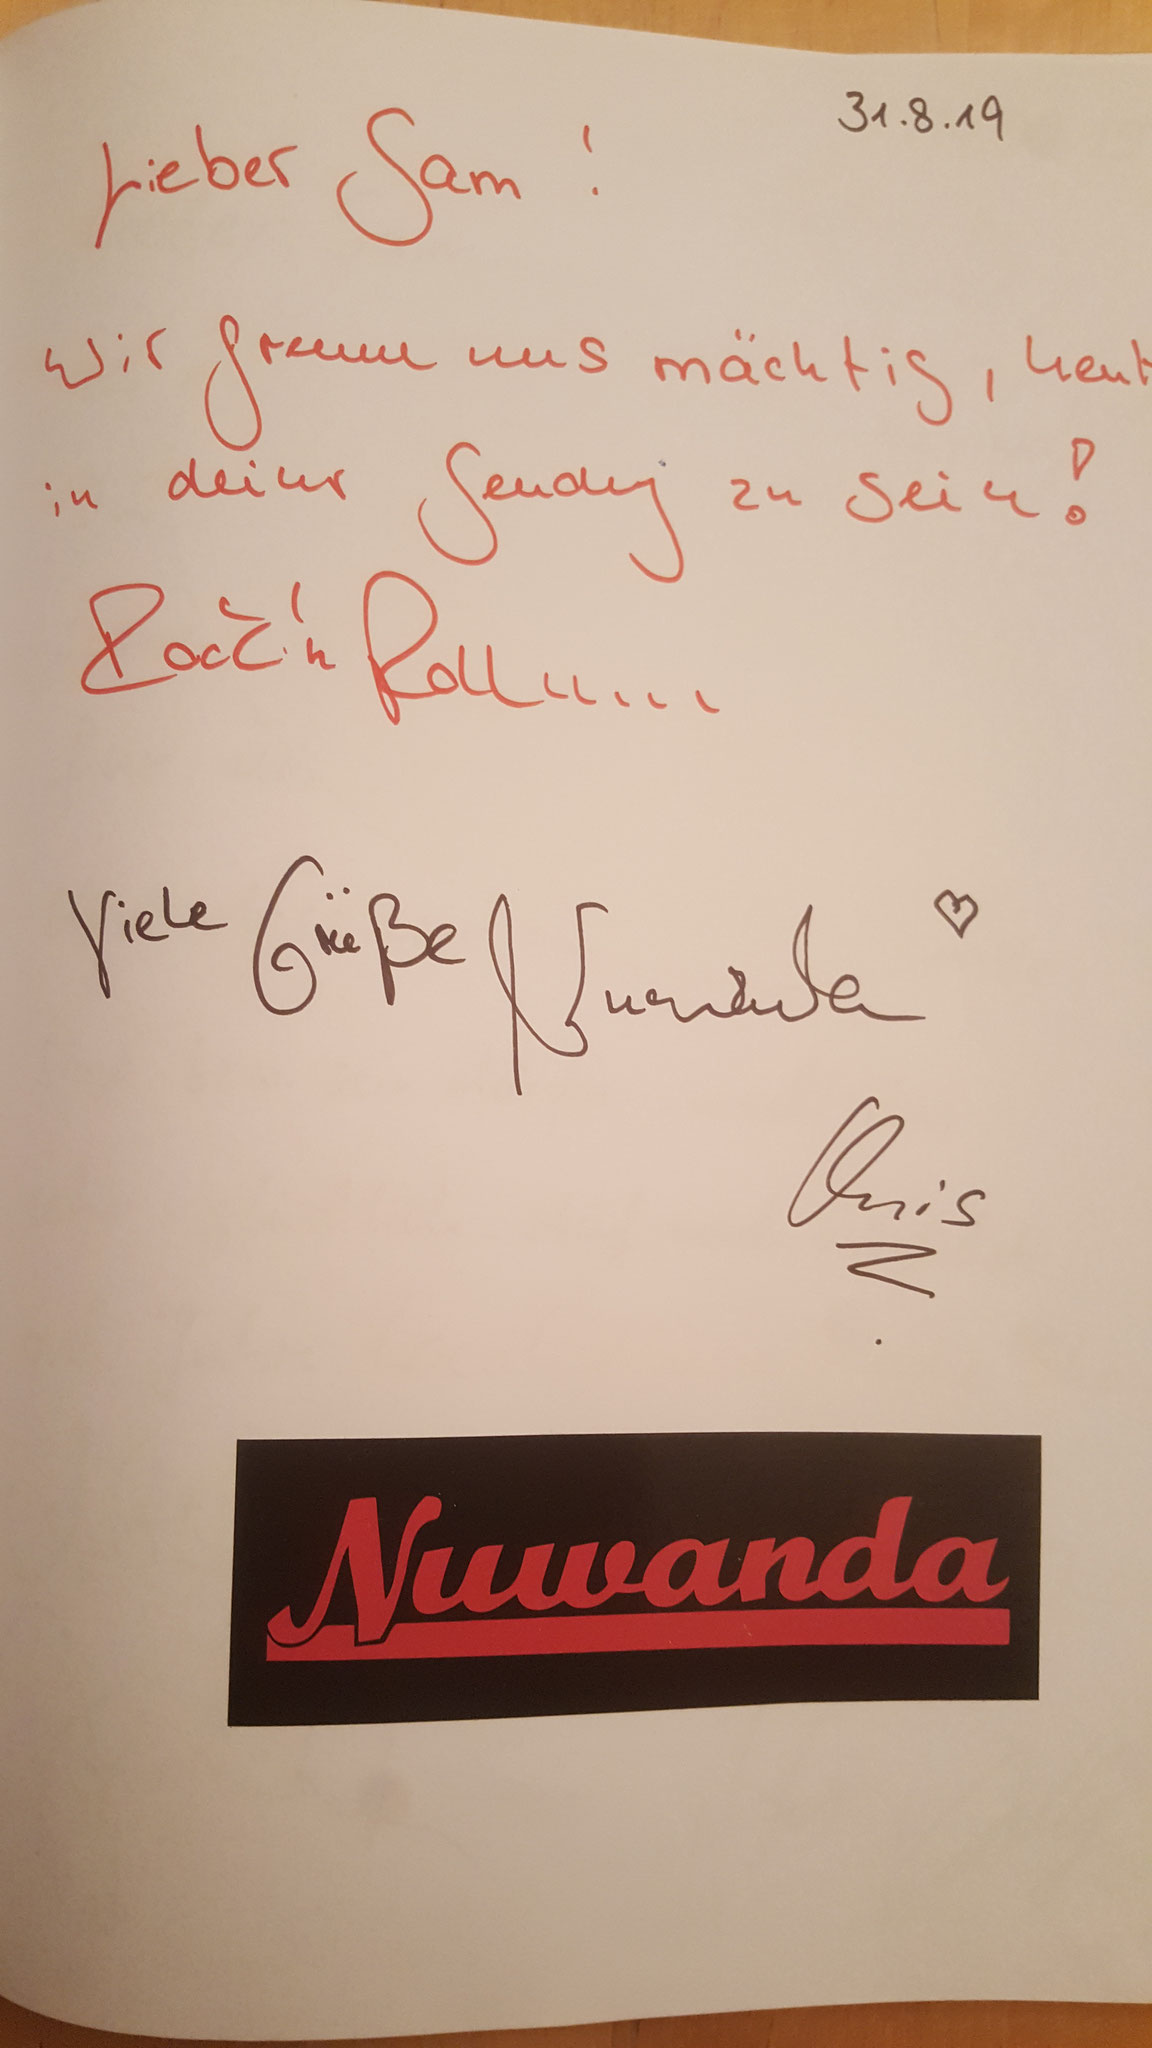 31.8.19
Lieber Sam!
Wir freuen uns mächtig, heut
in deiner Sendung zu sein!
Rock'n Roll.....
Viele Grüße Nuwanda
Nuwanda